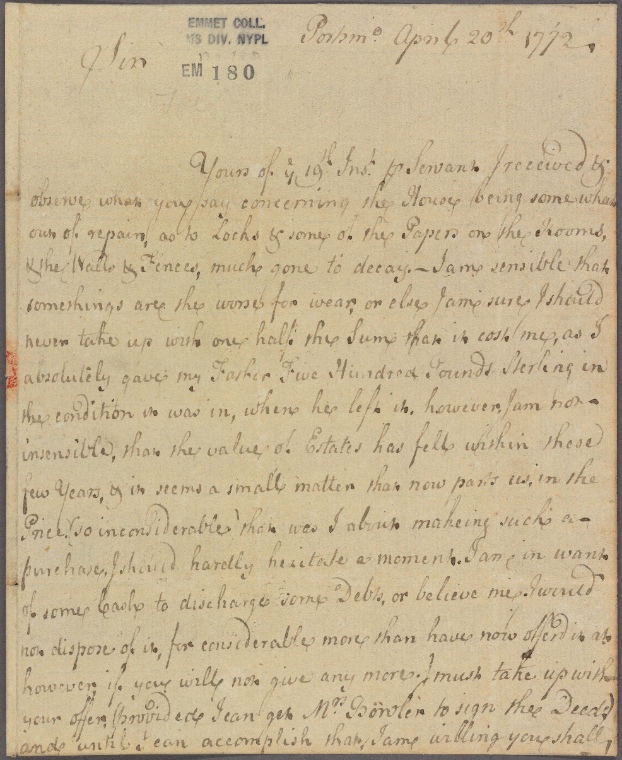 EMMET COLL.
MS DIV. NYPL
EM 180
Portsmo. April 20th 1772.
Sir
Yours of ye 19th Inst. p Servant I received &
observe what you say concerning the House being some what
out of repair, as to Locks & some of the Papers on the Rooms,
& the Walls & Fences, much gone to decay. – I am sensible that
somethings are the worse for wear, or else I am sure I should
never take up with one half the Sum that it cost me, as I
absolutely gave my Father Five Hundred Pounds Sterling in
the condition it was in, when he left it. however, I am not –
insensible, that the value of Estates has fell within these
few Years, & it seems a small matter that now parts us, in the
Price, (so inconsiderable) that was I about makeing such a –
purchase, I should hardly hesitate a moment. I am in want
of some Cash to discharge some Debts, or believe me I would
not dispose of it, for considerable more than have now offerd it at
however, if you will not give any more, I must take up with
your offer, (provided I can get Mrs. Bowler to sign the Deed)
and until I can accomplish that, I am willing you shall,